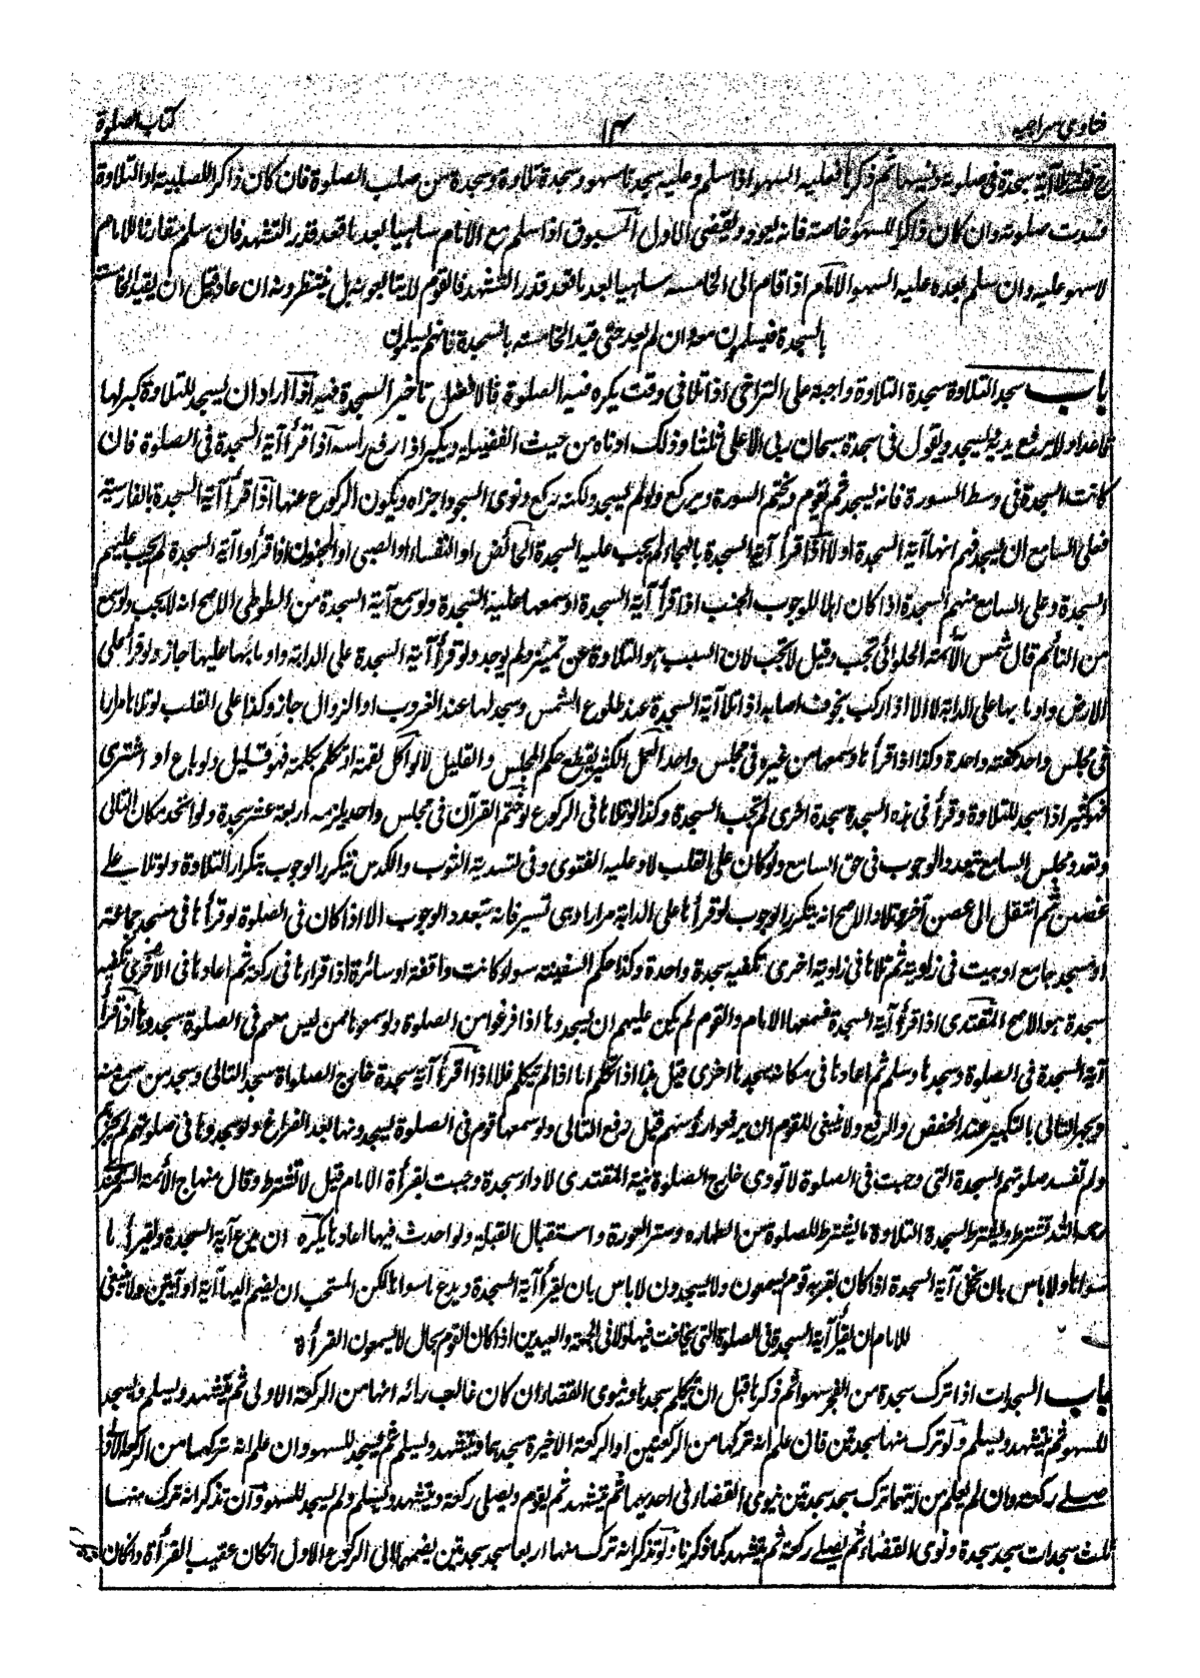 فتاوی سراجیه ۱۴ کتاب الصلوة
آیة سجدة فی صلوته ونسیها ثم ذکرها فعلیه السهو اذا سلم وعلیه سجدتا سهو وسجدة تلاوة وسجدة من صلب الصلوة فان کان ذاکرا للصلبیة او التلاوة
فسدت صلوته وان کان ذاکرا للسهو خاصة فانه یعود ویقضی الاول المسبوق اذا سلم مع الامام ساهیا بعد ما قعد قدر التشهد فان سلم مقارنا للامام
لا سهو علیه وان سلم بعده علیه السهو الامام اذا قام الی الخامسة ساهیا بعد ما قعد قدر التشهد فالقوم لا یتابعونه بل ینتظرونه ان عاد قبل ان یقید الخامسة
بالسجدة فیسلمون معه وان لم یعد حتی قید الخامسة بالسجدة فانهم یسلمون
باب سجد التلاوة سجدة التلاوة واجبة علی التراخی اذا تلا فی وقت یکره فیه الصلوة فالافضل تاخیر السجدة فیه اذا اراد ان یسجد للتلاوة کبر لها
قاعدا ولا یرفع یدیه لیسجد ویقول فی سجدة سبحان ربی الاعلی ثلثا وذلک ادناه من حیث الفضیلة ویکبر اذا رفع راسه اذا قرأ آیة السجدة فی الصلوة فان
کانت السجدة فی وسط السورة فانه یسجد ثم یقوم ویختم السورة ویرکع ولو لم یسجد ولکنه رکع ونوی السجود اجزاه ویکون الرکوع عنها اذا قرأ آیة السجدة بالفارسیة
فعلی السامع ان یسجد فهم انها آیة السجدة او لا اذا قرأ آیة السجدة بالهجاء لم یجب علیه السجدة الحائض او النفساء او الصبی او المجنون اذا قرأوا آیة السجدة لم یجب علیهم
السجدة وعلی السامع منهم السجدة اذا کان اهلا للوجوب الجنب اذا قرأ آیة السجدة او سمعها علیه السجدة ولو سمع آیة السجدة من الطوطی الاصح انه لا یجب ولو سمع
من النائم قال شمس الائمة الحلوائی تجب وقیل لا تجب لان السبب هو التلاوة عن تمییز ولم یوجد ولو قرأ آیة السجدة علی الدابة واومأ بها علیها جاز ولو قرأ علی
الارض واومأ بها علی الدابة لا الا اذا رکب بخوف اصابه اذا تلا آیة السجدة عند طلوع الشمس وسجد لها عند الغروب او الزوال جاز وکذا علی القلب لو تلاها مرارا
فی مجلس واحد کفته واحدة وکذا اذا قرأها وسمعها من غیره فی مجلس واحد العمل الکثیر یقطع حکم المجلس والقلیل لا لو اکل لقمة او تکلم بکلمة فهو قلیل ولو باع او اشتری
فهو کثیر اذا سجد للتلاوة وقرأ فی هذه السجدة سجدة اخری لم تجب السجدة وکذا لو تلاها فی الرکوع لو ختم القرآن فی مجلس واحد یلزمه اربعة عشر سجدة ولو اتحد مکان التالی
وتعدد مجلس السامع یتعدد الوجوب فی حق السامع ولو کان علی القلب لا وعلیه الفتوی وفی تسدیة الثوب والکدس یتکرر الوجوب بتکرار التلاوة ولو تلا علی
غصن ثم انتقل الی غصن آخر وتلا والاصح انه یتکرر الوجوب لو قرأها علی الدابة مرارا وهی تسیر فانه یتعدد الوجوب الا اذا کان فی الصلوة لو قرأها فی مسجد جماعة
او مسجد جامع او بیت فی زاویة ثم تلاها فی زاویة اخری تکفیه سجدة واحدة وکذا حکم السفینة سواء کانت واقفة او سائرة اذا قرأها فی رکعة ثم اعادها فی الاخری تکفیه
سجدة هو الاصح المقتدی اذا قرأ آیة السجدة فسمعها الامام والقوم لم یکن علیهم ان یسجدوها اذا فرغوا من الصلوة ولو سمعوها ممن لیس معهم فی الصلوة سجدوها اذا قرأ
آیة السجدة فی الصلوة وسجدها وسلم ثم اعادها فی مکانه سجدها اخری قیل هذا اذا تکلم اما اذا لم یتکلم فلا اذا قرأ آیة سجدة خارج الصلواة سجد التالی وسجد من سمع منه
ویجهر التالی بالتکبیر عند الخفض والرفع ولا ینبغی للقوم ان یرفعوا رؤسهم قبل رفع التالی ولو سمعها قوم فی الصلوة یسجدونها بعد الفراغ ولو سجدوها فی صلوتهم لم یجز
ولم تفسد صلوتهم السجدة التی وجبت فی الصلوة لا تودی خارج الصلوة نیة المقتدی لاداء سجدة وجبت بقرأة الامام قیل لا تشترط وقال منهاج الائمة السمرقندی
رحمه الله تشترط ویشترط لسجدة التلاوة ما یشترط للصلوة من الطهارة وستر العورة واستقبال القبلة ولو احدث فیها اعادها یکره ان یدع آیة السجدة ویقرأ ما
سواها ولا باس بان یخفی آیة السجدة اذا کان بقربه قوم یسمعون ولا یسجدون لا باس بان یقرأ آیة السجدة ویدع ما سواها لکن المستحب ان یضم الیها آیة او آیتین ولا ینبغی
للامام ان یقرأ آیة السجدة فی الصلوة التی یخافت فیها ولا فی الجمعة والعیدین اذا کان القوم بحال لا یسمعون القرأة
باب السجدات اذا ترک سجدة من الفجر سهوا ثم ذکرها قبل ان یتکلم سجدها ونوی القضاء ان کان غالب رائه انها من الرکعة الاولی ثم یتشهد ویسلم ویسجد
للسهو ثم یتشهد ویسلم ولو ترک منها سجدتین فان علم انه ترکها من الرکعتین او الرکعة الاخیرة سجدهما ویتشهد ویسلم ثم یسجد للسهو وان علم انه ترکهما من الرکعة الاولی
صلی رکعة وان لم یعلم من ایتهما ترک سجد سجدتین ینوی القضاء فی احدیهما ثم یتشهد ثم یقوم ویصلی رکعة ویتشهد ویسلم ولم یسجد للسهو وان تذکر انه ترک منها
ثلث سجدات سجد سجدة ونوی القضاء ثم یصلی رکعة ثم یتشهد کما ذکرنا ولو تذکر انه ترک منها اربعا سجد سجدتین یضمهما الی الرکوع الاول ان کان عقیب القرأة وان کان